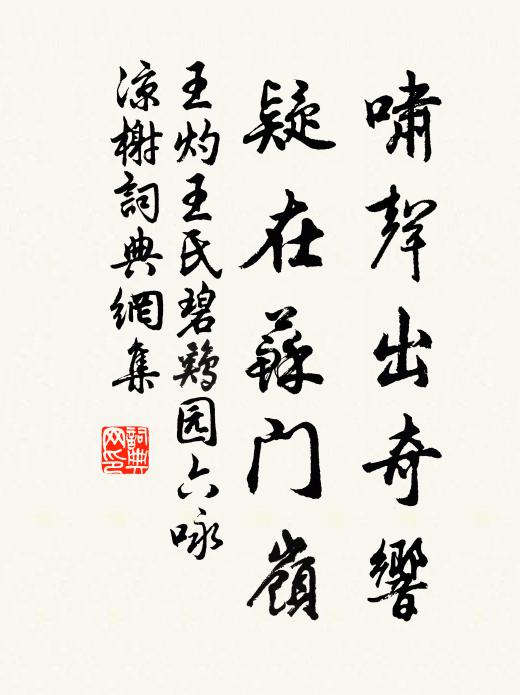 嘯聲出奇響
疑在蘇門嶺
王灼王氏碧鷄园六咏
凉榭詞典網集
詞典
网印